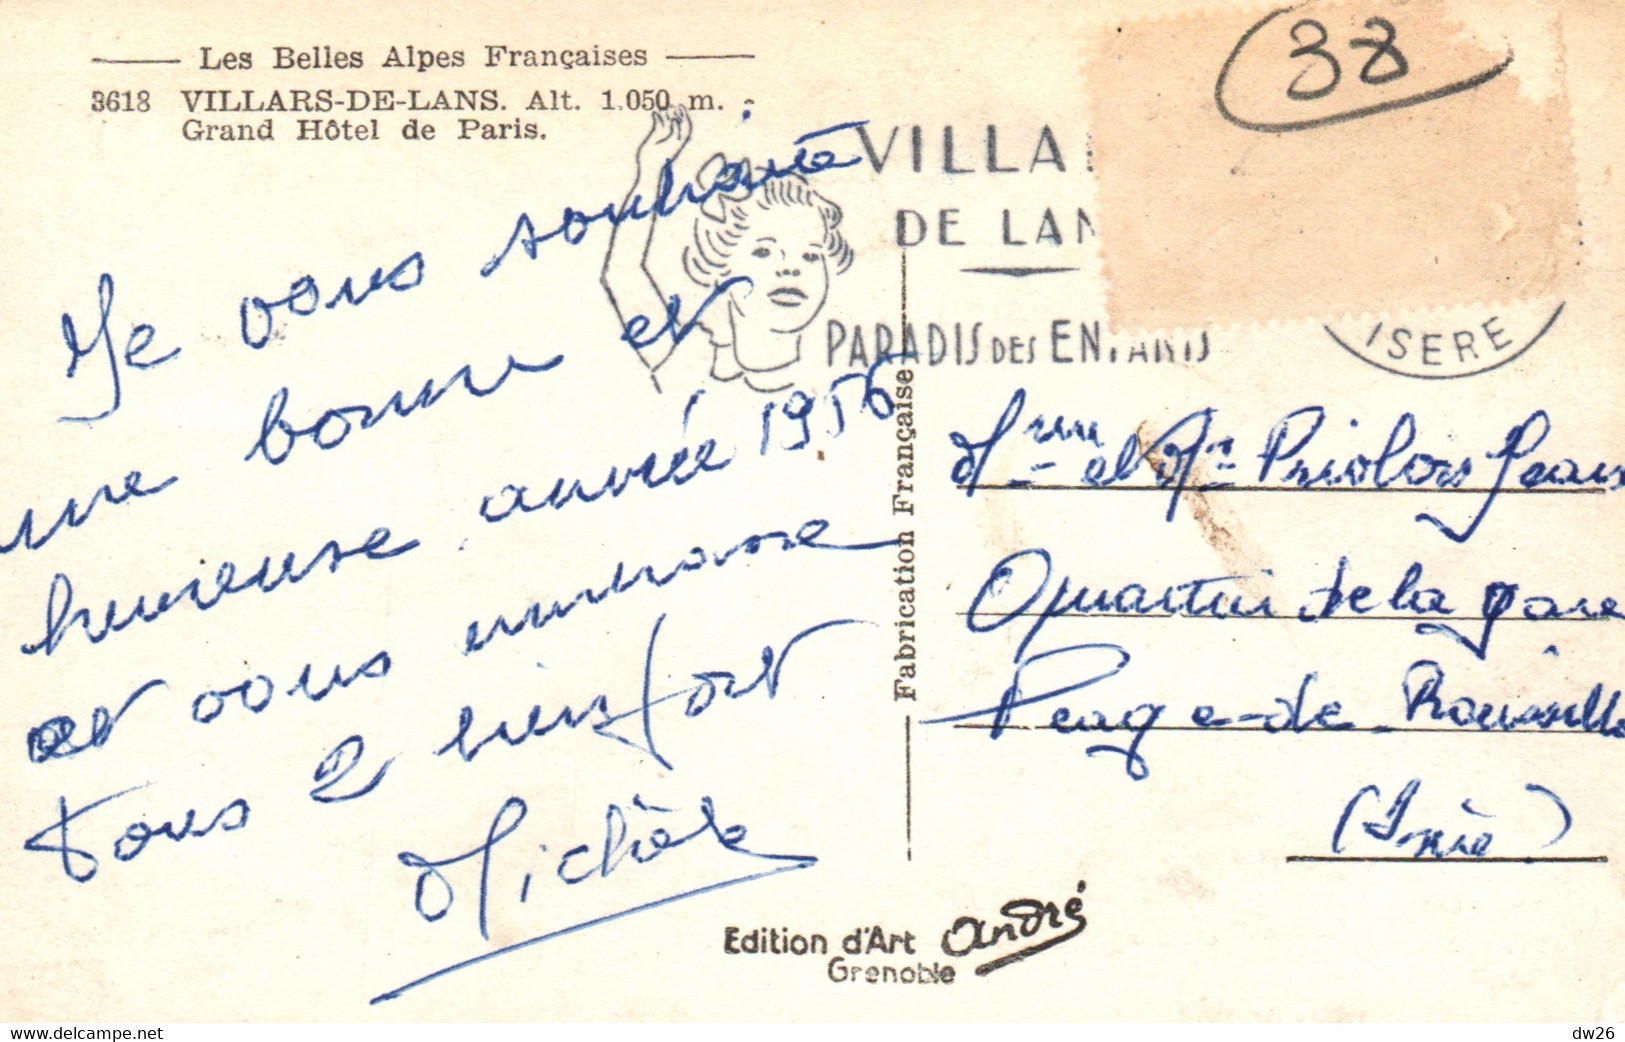 Les Belles Alpes Françaises
3618 VILLARS-DE-LANS. Alt. 1.050 m.
Grand Hôtel de Paris.
38
VILLA
DE LAN
PARADIS DES ENFANTS
ISERE
Je vous souhaite
une bonne et
heureuse année 1956
et vous embrasse
tous 2 bien fort
Michèle
Fabrication Française
Mme et Mr Jean
Quartier de la gare
Peage-de-Roussillo
(Isère)
Edition d'Art André
Grenoble
delcampe.net
dw26